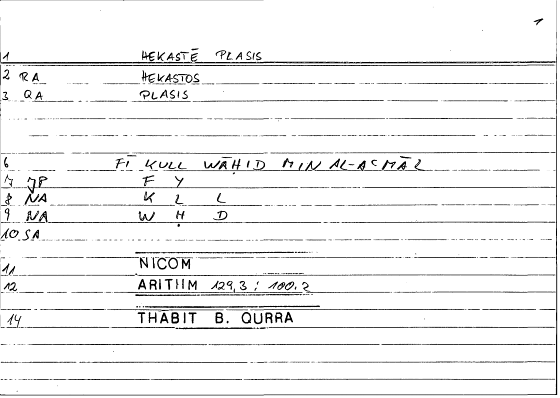 1
1 HEKASTĒ PLASIS
2 RA HEKASTOS
3 QA PLASIS
6 FĪ KULL WĀḤID MIN AL-ACMĀL
7 JP F Y
8 NA K L L
9 NA W Ḥ D
10 SA
11 NICOM
12 ARITHM 129,3 : 100.2
14 THABIT B. QURRA